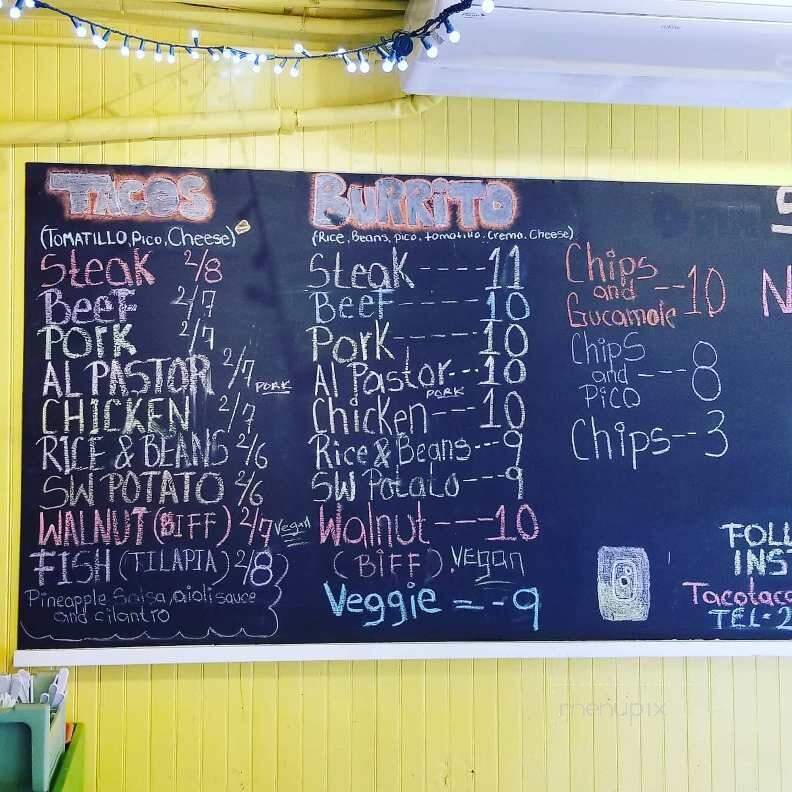 TACOS
(TOMATILLO, Pico, Cheese)
Steak 2/8
Beef 2/7
PORK 2/7
AL PASTOR 2/7 PORK
CHICKEN 2/7
RICE & BEANS 2/6
SW POTATO 2/6
WALNUT (BIFF) 2/7 vegan
FISH (TILAPIA) 2/8
Pineapple Salsa, aioli sauce
and cilantro
BURRITO
(Rice, Beans, pico, tomatillo, Crema, Cheese)
Steak ---- 11
Beef ---- 10
Pork ---- 10
Al Pastor --- 10
PORK
Chicken --- 10
Rice & Beans --- 9
SW Potato --- 9
Walnut --- 10
(BIFF) . vegan
Veggie = - - 9
Chips
and -- 10
Gucamole
CHIPS
and --- 8
PICO
Chips -- 3
S
N
8
FOLL
INS
Tacotaco
TEL - 2
menupix